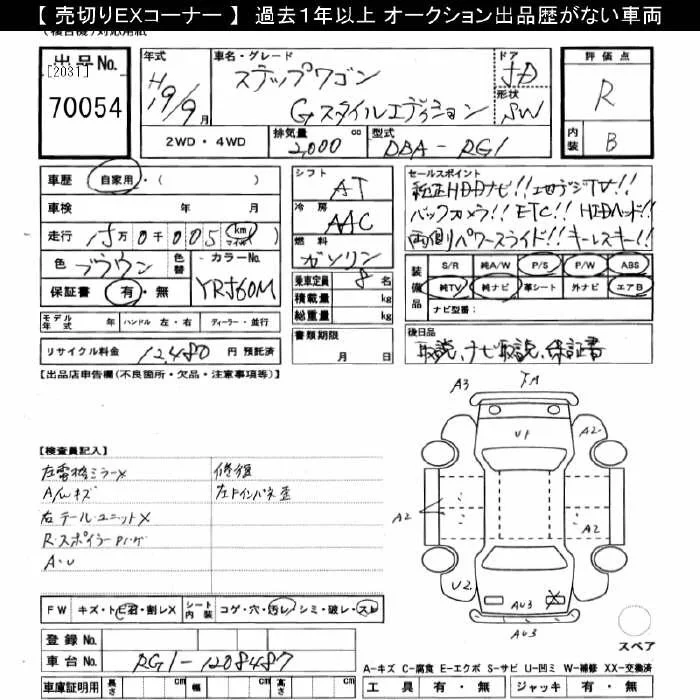 【 売切りEXコーナー 】 過去1年以上 オークション出品歴がない車両
出品No.
[2031]
70054
年式
H19/9月
車名・グレード
ステップワゴン
Gスタイルエディション
ドア
5D
形状
SW
評価点
R
内装
B
2WD・4WD
排気量
2,000
cc
型式
DBA-RG1
車歴
自家用・( )
車検 年 月
走行 15万0千005 km マイル
色
ブラウン
色替
カラーNo.
YR560M
保証書 有・無
モデル年式
ハンドル 左・右
ディーラー・並行
リサイクル料金 12,480 円 預託済
シフト
AT
冷房
AAC
燃料
ガソリン
乗車定員 8 名
積載量 kg
総重量 kg
書類期限
月 日
セールスポイント
純正HDDナビ!! 地デジTV!!
バックカメラ!! ETC!! HIDヘッド!!
両側パワースライド!! キーレスキー!!
装備品
S/R 純A/W P/S P/W ABS
純TV 純ナビ 革シート 外ナビ エアB
ナビ型番:
後日品
取説、ナビ取説、保証書
【出品店申告欄(不良箇所・欠品・注意事項等)】
【検査員記入】
左電格ミラーX
A/Wキズ
右テール・ユニットX
R・スポイラー
A・U
修復
左ドインパネ歪
FW キズ・ト・割レX
シート内装 コゲ・穴・汚レ・シミ・破レ・スレ
登録No.
車台No. RG1-1208487
車庫証明用 長さ cm 幅 cm 高さ cm
A3
U1
A2
A2
A2
U2
AU3
AU3
スペア
A-キズ C-腐食 E-エクボ S-サビ U-凹ミ W-補修 XX-交換済
工具 有・無 ジャッキ 有・無